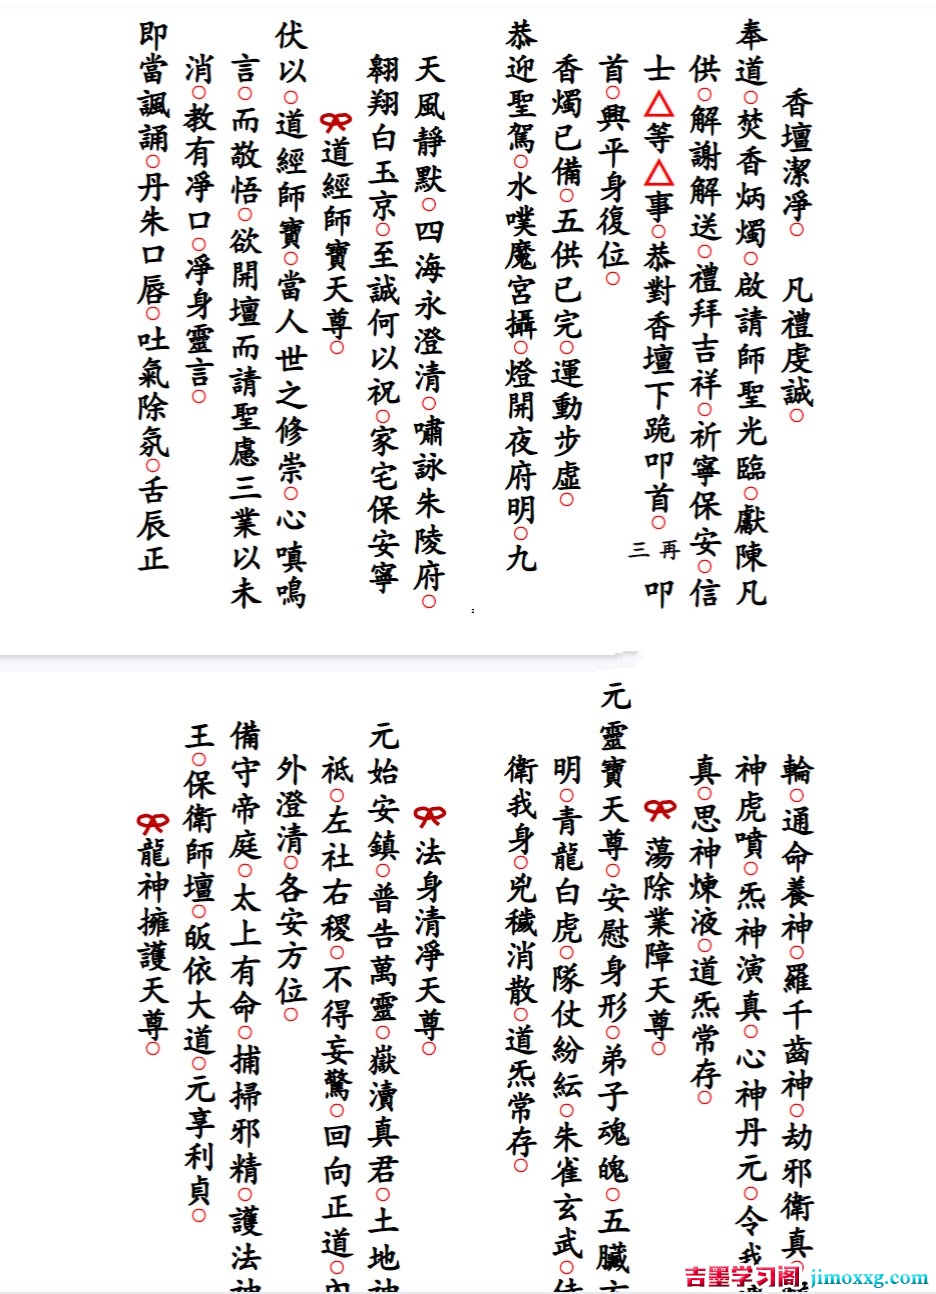 香壇潔淨○　凡禮虔誠○
奉道○焚香炳燭○啟請師聖光臨○獻陳凡
供○解謝解送○禮拜吉祥○祈寧保安○信
士△等△事○恭對香壇下跪叩首○再三叩
首○興平身復位○
香燭已備○五供已完○運動步虛○
恭迎聖駕○水噗魔宮攝○燈開夜府明○九
天風靜默○四海永澄清○嘯詠朱陵府○
翱翔白玉京○至誠何以祝○家宅保安寧
道經師寶天尊○
伏以○道經師寶○當人世之修崇○心嗔鳴
言○而敬悟○欲開壇而請聖慮三業以未
消○教有淨口○淨身靈言○
即當諷誦○丹朱口唇○吐氣除氛○舌辰正
2
輪○通命養神○羅千齒神○劫邪衛真○
神虎噴○炁神演真○心神丹元○令我
真○思神煉液○道炁常存○
蕩除業障天尊○
元靈寶天尊○安慰身形○弟子魂魄○五臟
明○青龍白虎○隊仗紛紜○朱雀玄武○
衛我身○兇穢消散○道炁常存○
法身清淨天尊○
元始安鎮○普告萬靈○嶽瀆真君○土地神
祇○左社右稷○不得妄驚○回向正道○內
外澄清○各安方位○
備守帝庭○太上有命○捕掃邪精○護法神
王○保衛師壇○皈依大道○元享利貞○
龍神擁護天尊○
吉墨学习阁 jimoxxg.com